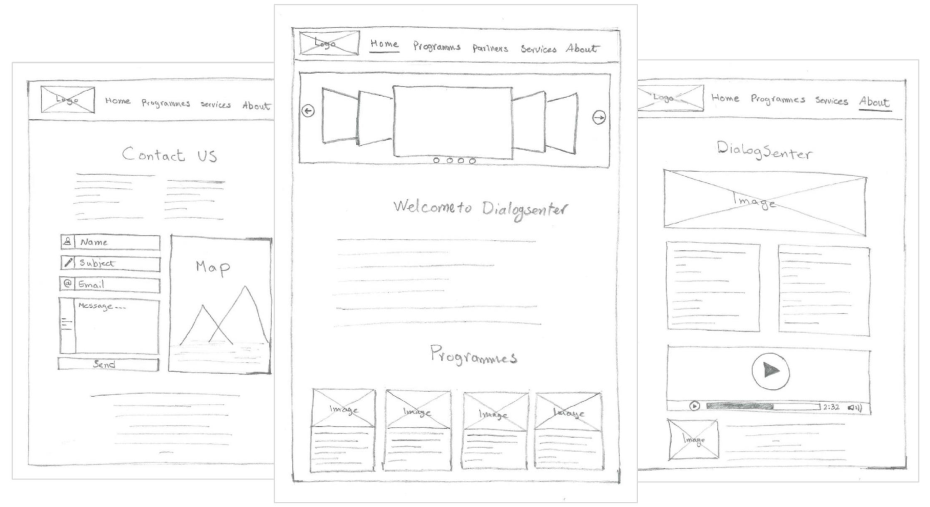 Logo Home Programmes Services About
Contact US
Name
Subject
@ Email
Message---
Send
Map
Logo Home Programms Partners Services About
Welcome to Dialogsenter
Programmes
Image Image Image Image
Logo Home Programmes Services About
DialogSenter
Image
2:32
Image